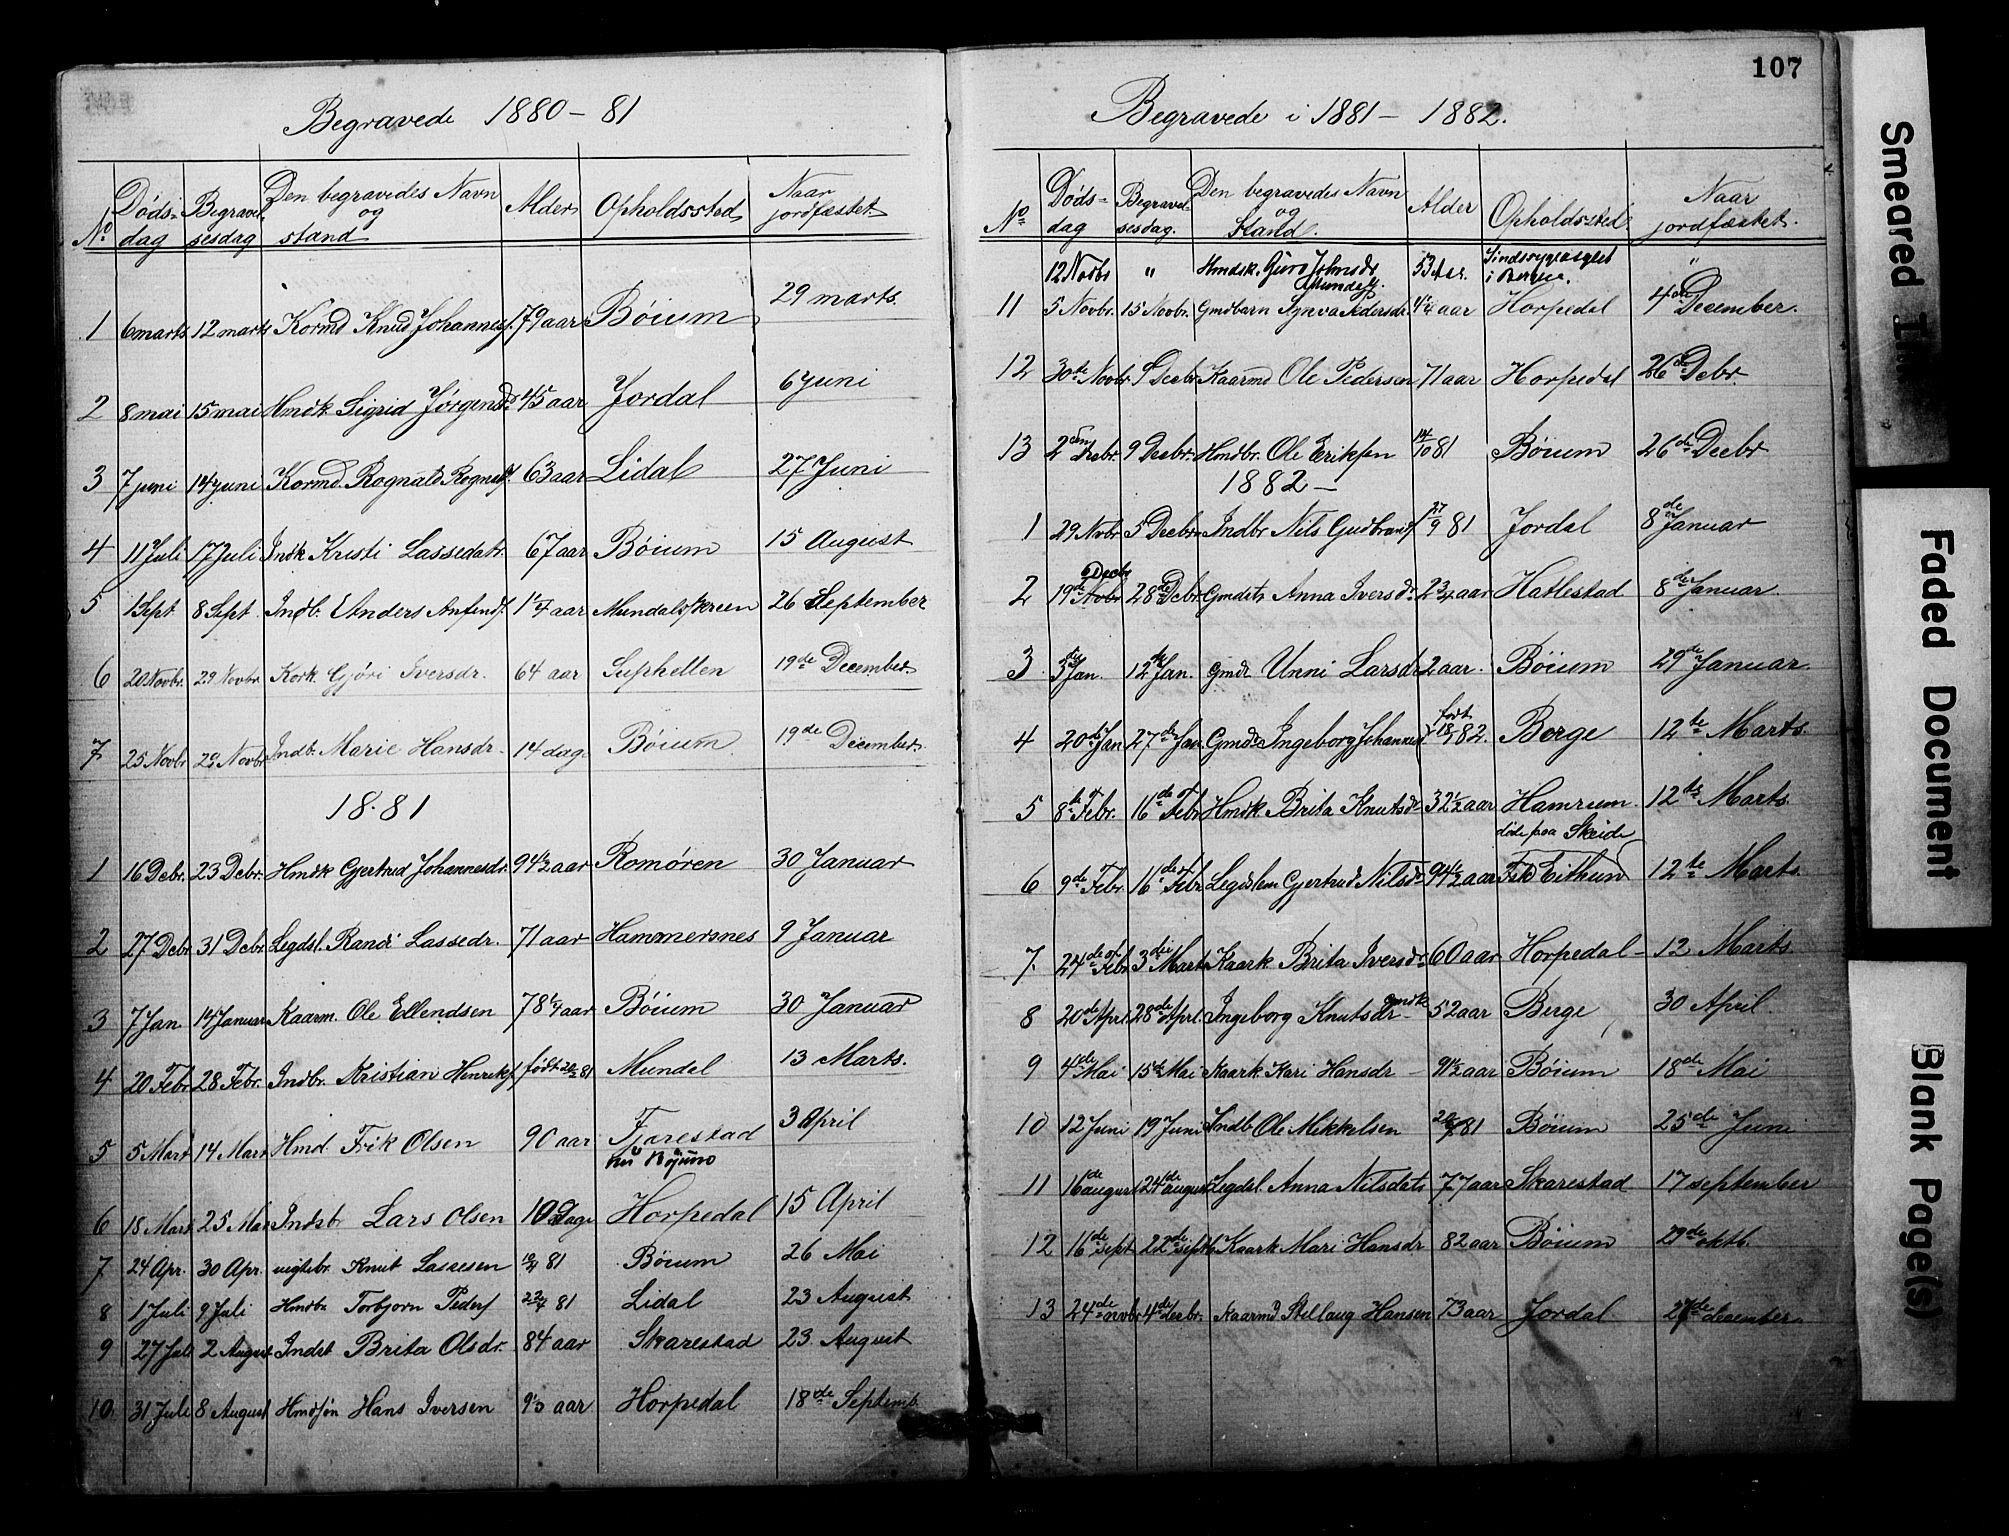 Begravede 1880 - 81
No Dødsdag Begravelsesdag Den begravedes Navn og stand Alder Opholdssted Naar jordfæstet.
1 6 marts 12 marts Kormd Knud Johannes. 79 aar Bøium 29 marts.
2 8 mai 15 mai Hmdk Sigrid Jørgensd. 45 aar Jordal 6 Juni
3 7 juni 14 juni Kormd. Rognald Rognalds. 63 aar Lidal 27 Juni
4 11 Juli 17 Juli Indk Kristi Lassedatr. 67 aar Bøium 15 August
5 1 Sept 8 Sept. Indb. Anders Anfends. 1 1/4 aar Mundalsskreen 26 September
6 20 Novbr. 29 Novbr. Kork. Gjøri Iversdr. 64 aar Suphellen 19de December
7 25 Novbr 29 Novbr Indb. Marie Hansdr. 14 dag. Bøium 19de December.
18.81
1 16 Debr. 23 Debr. Hmdk Gjertrud Johannesdr. 94 1/2 aar Romøren 30 Januar
2 27 Debr 31 Debr Legdsl. Randi Lassedr. 71 aar Hammersnes 9 Januar
3 7 Jan. 14 Januar Kaarm. Ole Ellendsen 78 1/4 aar Bøium 30 Januar
4 20 Febr 28 Febr. Indbr. Kristian Henriks. født 20/2 81 Mundal 13 Marts.
5 5 Mart 14 Mart Hmd Frik Olsen 90 aar Fjærestad 3 April
6 18 Mart 25 Mar Indsb. Lars Olsen 10 Dage Horpedal 15 April
7 24 Apr. 30 Apr. uegtebr. Knut Lassesen 12/4 81 Bøium 26 Mai
8 1 Juli 9 Juli Hmdbr Torbjorn Peders 22/4 81 Lidal 23 August
9 27 Juli 2 August Indst Brita Olsdr. 84 aar Skarestad 23 August
10 31 Juli 8 August Hmdsøn Hans Iversen 9 1/3 aar Horpedal 18de Septemb.
107
Begravede i 1881 - 1882.
No Dødsdag Begravelsesdag. Den begravedes Navn og Stand. Alder Opholdssted Naar jordfæstet.
12 Novbr " Hmdsk. Guro Johnsdr. Mundal. 53 Aar. Sindssygeasylet i Bergen. "
11 5 Novbr. 15 Novbr. Gmdbarn Synva Pedersdr. 4 1/4 aar Horpedal 4de December.
12 30te Novbr 9 Decbr Kaarmd Ole Pedersen 71 aar Horpedal 26de Debr.
13 2den Decbr. 9 Decbr. Hmdbr. Ole Eriksen 14/10 81 Bøium 26de Decbr
1882 -
1 29 Nvbr 5 Decbr Indbr Nils Gudbrands 27/9 81 Jordal 8de Januar
2 19de Decbr Novbr 28de Debr Gmdsts Anna Iversdr 23/4 aar Hatlestad 8de Januar
3 3die Jan. 12te Jan. Gmdr Unni Larsdr 2 aar. Bøium 29de Januar.
4 20de Jan 27de Jan Gmds Ingeborg Johannesd født 18/1 82. Berge 12te Marts.
5 8de Febr. 16de Febr Hmdk Brita Knutsdr 32 1/2 aar Hamrum. 12te Marts.
døde paa Skeide
6 9de Febr. 16de Febr Legdslem Gjertrud Nilsdr 94 1/2 aar Eithun 12te Marts.
7. 24de Febr 3die Marts Kaark Brita Iversdr 60 aar Horpedal - 12 Marts.
8 20de Apr. 28de Apr. Ingeborg Knutsdr - gmdk 52 aar Berge 30 April.
9 4de Mai 15de Mai Kaark. Kari Hansdr - 91 1/2 aar Bøium 18de Mai
10 12 Juni 19 Juni Indb Ole Mikkelsen 81 Bøium 25de Juni
11 16de august 24de august Legdsl. Anna Nilsdatr 77 aar Skarestad 17 september
12 16de sept 22de septb Kaark Mari Hansdr 82 aar Bøium 29de oktb.
13 24de novbr 4de decbr. Kaarmd Stellaug Hansen 73 aar Jordal 27de december
Smeared
Faded Document
Blank Page(s)